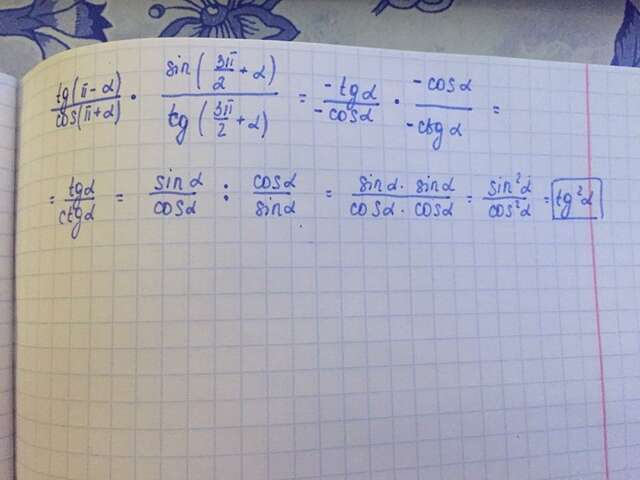 tg(π-α)/cos(π+α) · sin(3π/2+α)/tg(3π/2+α) = -tgα/-cosα · -cosα/-ctgα =
= tgα/ctgα = sinα/cosα : cosα/sinα = sinα·sinα/cosα·cosα = sin²α/cos²α = tg²α